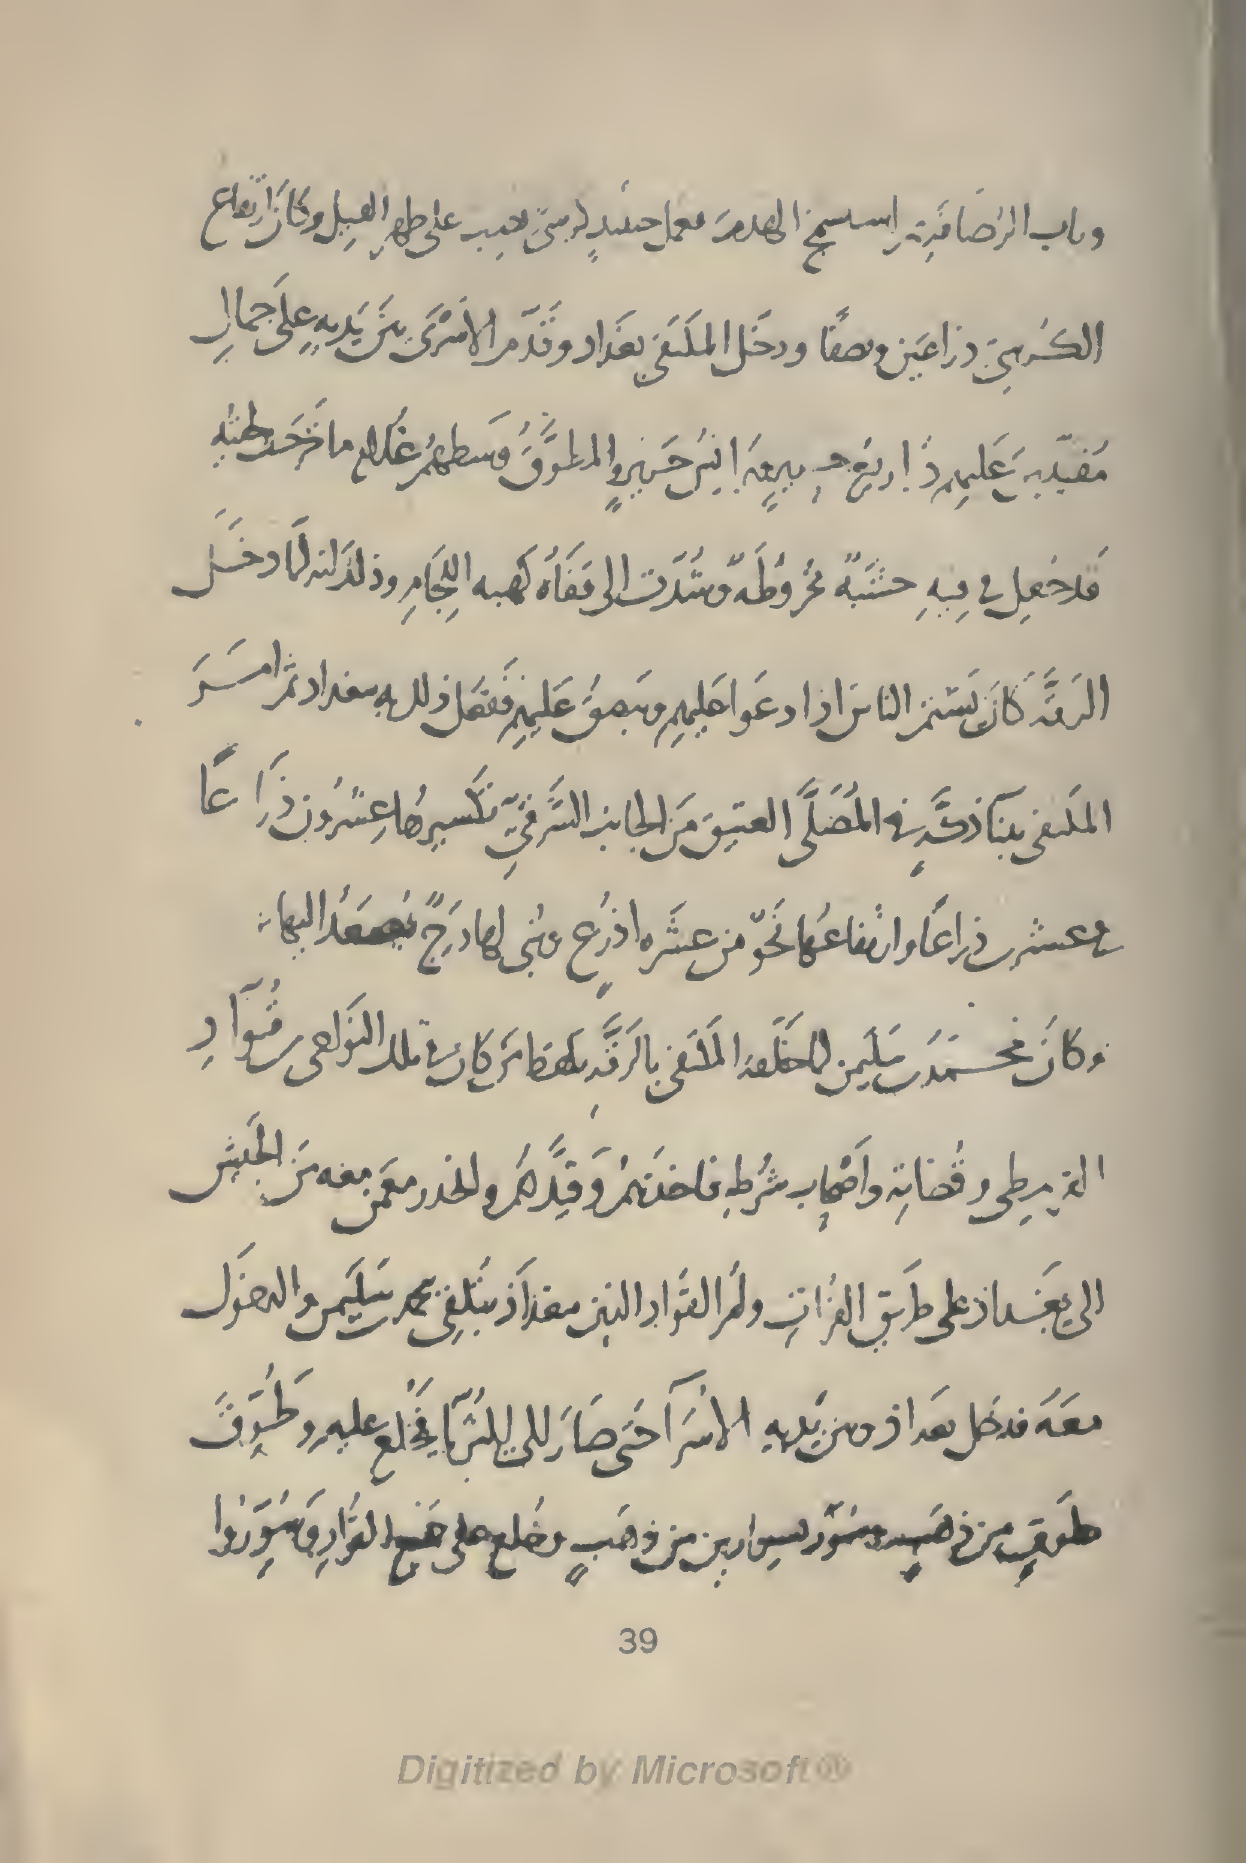 وباب الرُّصافة ثم استسمج الهدم فعمل حينئذ كرسيّ نصب على ظهر الفيل وكان ارتفاع
الكرسيّ ذراعين ونصفًا ودخل المكتفى بغداد وقدّم الاسرى بين يديه على جمال
مقيّدين عليهم حرير والمطوَّق وسطهم غلام ما خرجت لحيته
قد جُعل في فيه خشبة مخروطة وشدّت الى قفاه كهيه اللجام وذلك انه لمّا دخل
الرقّة كان يشتم الناس اذا دعوا عليهم ويبصق عليهم ففعل ذلك به ببغداد ثم امر
المكتفى ببنا دكّة في المُصَلَّى العتيق من الجانب الشرقيّ تكسيرها عشرون ذراعًا
في عشرين ذراعًا وارتفاعها نحوٌ من عشره اذرُع وبُنى لها دَرَجٌ يُصعد اليها
وكان محمد بن سليمن لما خلّفه المكتفى بالرقّه يلقط من كان في تلك النواحى من قُوّاد
القرمطى وقُضاته واصحاب شُرطه فاخذهم وقيّدهم وانحدر معمن معه من الجيش
الى بغداذ على طريق الفرات وأمر القوّاد الذين ببغداذ بتلقى محمد بن سليمن والدخول
معه فدخل بغداذ وبين يديه الاسرا حتى صار الى الثريّا فخُلع عليه وطُوّق
طوق من ذهب وسُوّر بسوارين من ذهب وخُلع على جميع القوّاد وسُوّروا
39
Digitized by Microsoft®